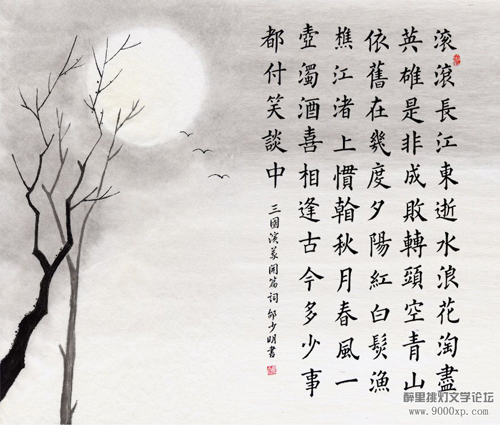 滚滾長江東逝水浪花淘盡
英雄是非成敗轉頭空青山
依舊在幾度夕陽紅白髮漁
樵江渚上慣看秋月春風一
壺濁酒喜相逢古今多少事
都付笑談中
三國演義開篇詞 少明書
醉里挑灯文学论坛
www.9000xp.com